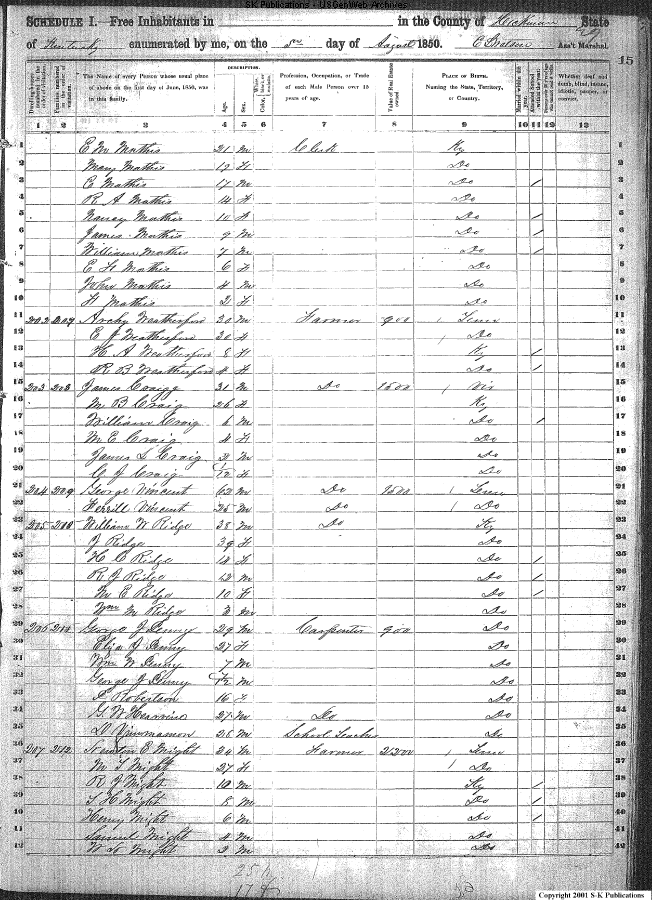 S-K Publications - USGenWeb Archives
SCHEDULE I.—Free Inhabitants in in the County of Hickman State
of Kentucky enumerated by me, on the day of August 1850. Ass't Marshal.
15
Dwelling-houses numbered in the order of visitation.
Families numbered in the order of visitation.
The Name of every Person whose usual place of abode on the first day of June, 1850, was in this family.
DESCRIPTION.
Age.
Sex.
Color, White, black, or mulatto.
Profession, Occupation, or Trade of each Male Person over 15 years of age.
Value of Real Estate owned
PLACE OR BIRTH. Naming the State, Territory, or Country.
Married within the year.
Attended School within the year.
Whether deaf and dumb, blind, insane, idiotic, pauper, or convict.
1 2 3 4 5 6 7 8 9 10 11 12 13
1 E M Mathis 21 M Clerk Ky 1
2 Mary Mathis 19 F Do 2
3 C Mathis 17 M Do / 3
4 R A Mathis 14 F Do 4
5 Nancy Mathis 10 F Do / 5
6 James Mathis 9 M Do / 6
7 William Mathis 7 M Do / 7
8 E H Mathis 6 F Do 8
9 John Mathis 4 M Do 9
10 H Mathis 2 F Do 10
11 202 207 Archy Weatherford 30 M Farmer 900 Tenn 11
12 E J Weatherford 30 F Do 12
13 H A Weatherford 8 F Ky / 13
14 R B Weatherford 4 F Do / 14
15 203 208 James Craigg 31 M Do 1500 Vir 15
16 M B Craig 26 F Ky 16
17 William Craig 6 M Do / 17
18 M E Craig 4 F Do 18
19 James L Craig 3 M Do 19
20 C J Craig /12 F Do 20
21 204 209 George Vincent 62 M Do 1500 Tenn 21
22 Herrill Vincent 25 M Do Do 22
23 205 210 William W Ridge 38 M Do Ky 23
24 J Ridge 39 F Do 24
25 H C Ridge 14 F Do / 25
26 R J Ridge 12 M Do / 26
27 M E Ridge 10 F Do / 27
28 Wm M Ridge 3 M Do 28
29 206 211 George J Denny 29 M Carpenter 900 Do 29
30 Eliza J Denny 27 F Do 30
31 Wm W Denny 7 M Do 31
32 George J Denny /12 M Do 32
33 F Robertson 16 F Do 33
34 G W 27 M Do Do 34
35 D 28 M School Teacher Do 35
36 207 212 Newton E Wright 34 M Farmer 2500 Tenn 36
37 M T Wright 27 F Do 37
38 R J Wright 10 M Ky / 38
39 S H Wright 8 M Do / 39
40 Henry Wright 6 M Do / 40
41 Samuel Wright 4 M Do 41
42 W H Wright 2 M Do 42
25
17
Copyright 2001 S-K Publications